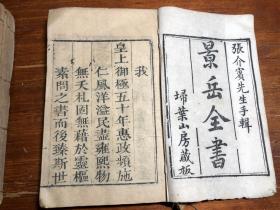 張介賓先生手輯
景岳全書
掃葉山房藏板
我
皇上御極五十年惠政頻施
仁風洋溢民盡雍熙物
無夭札固無藉於靈樞
素問之書而後臻斯世